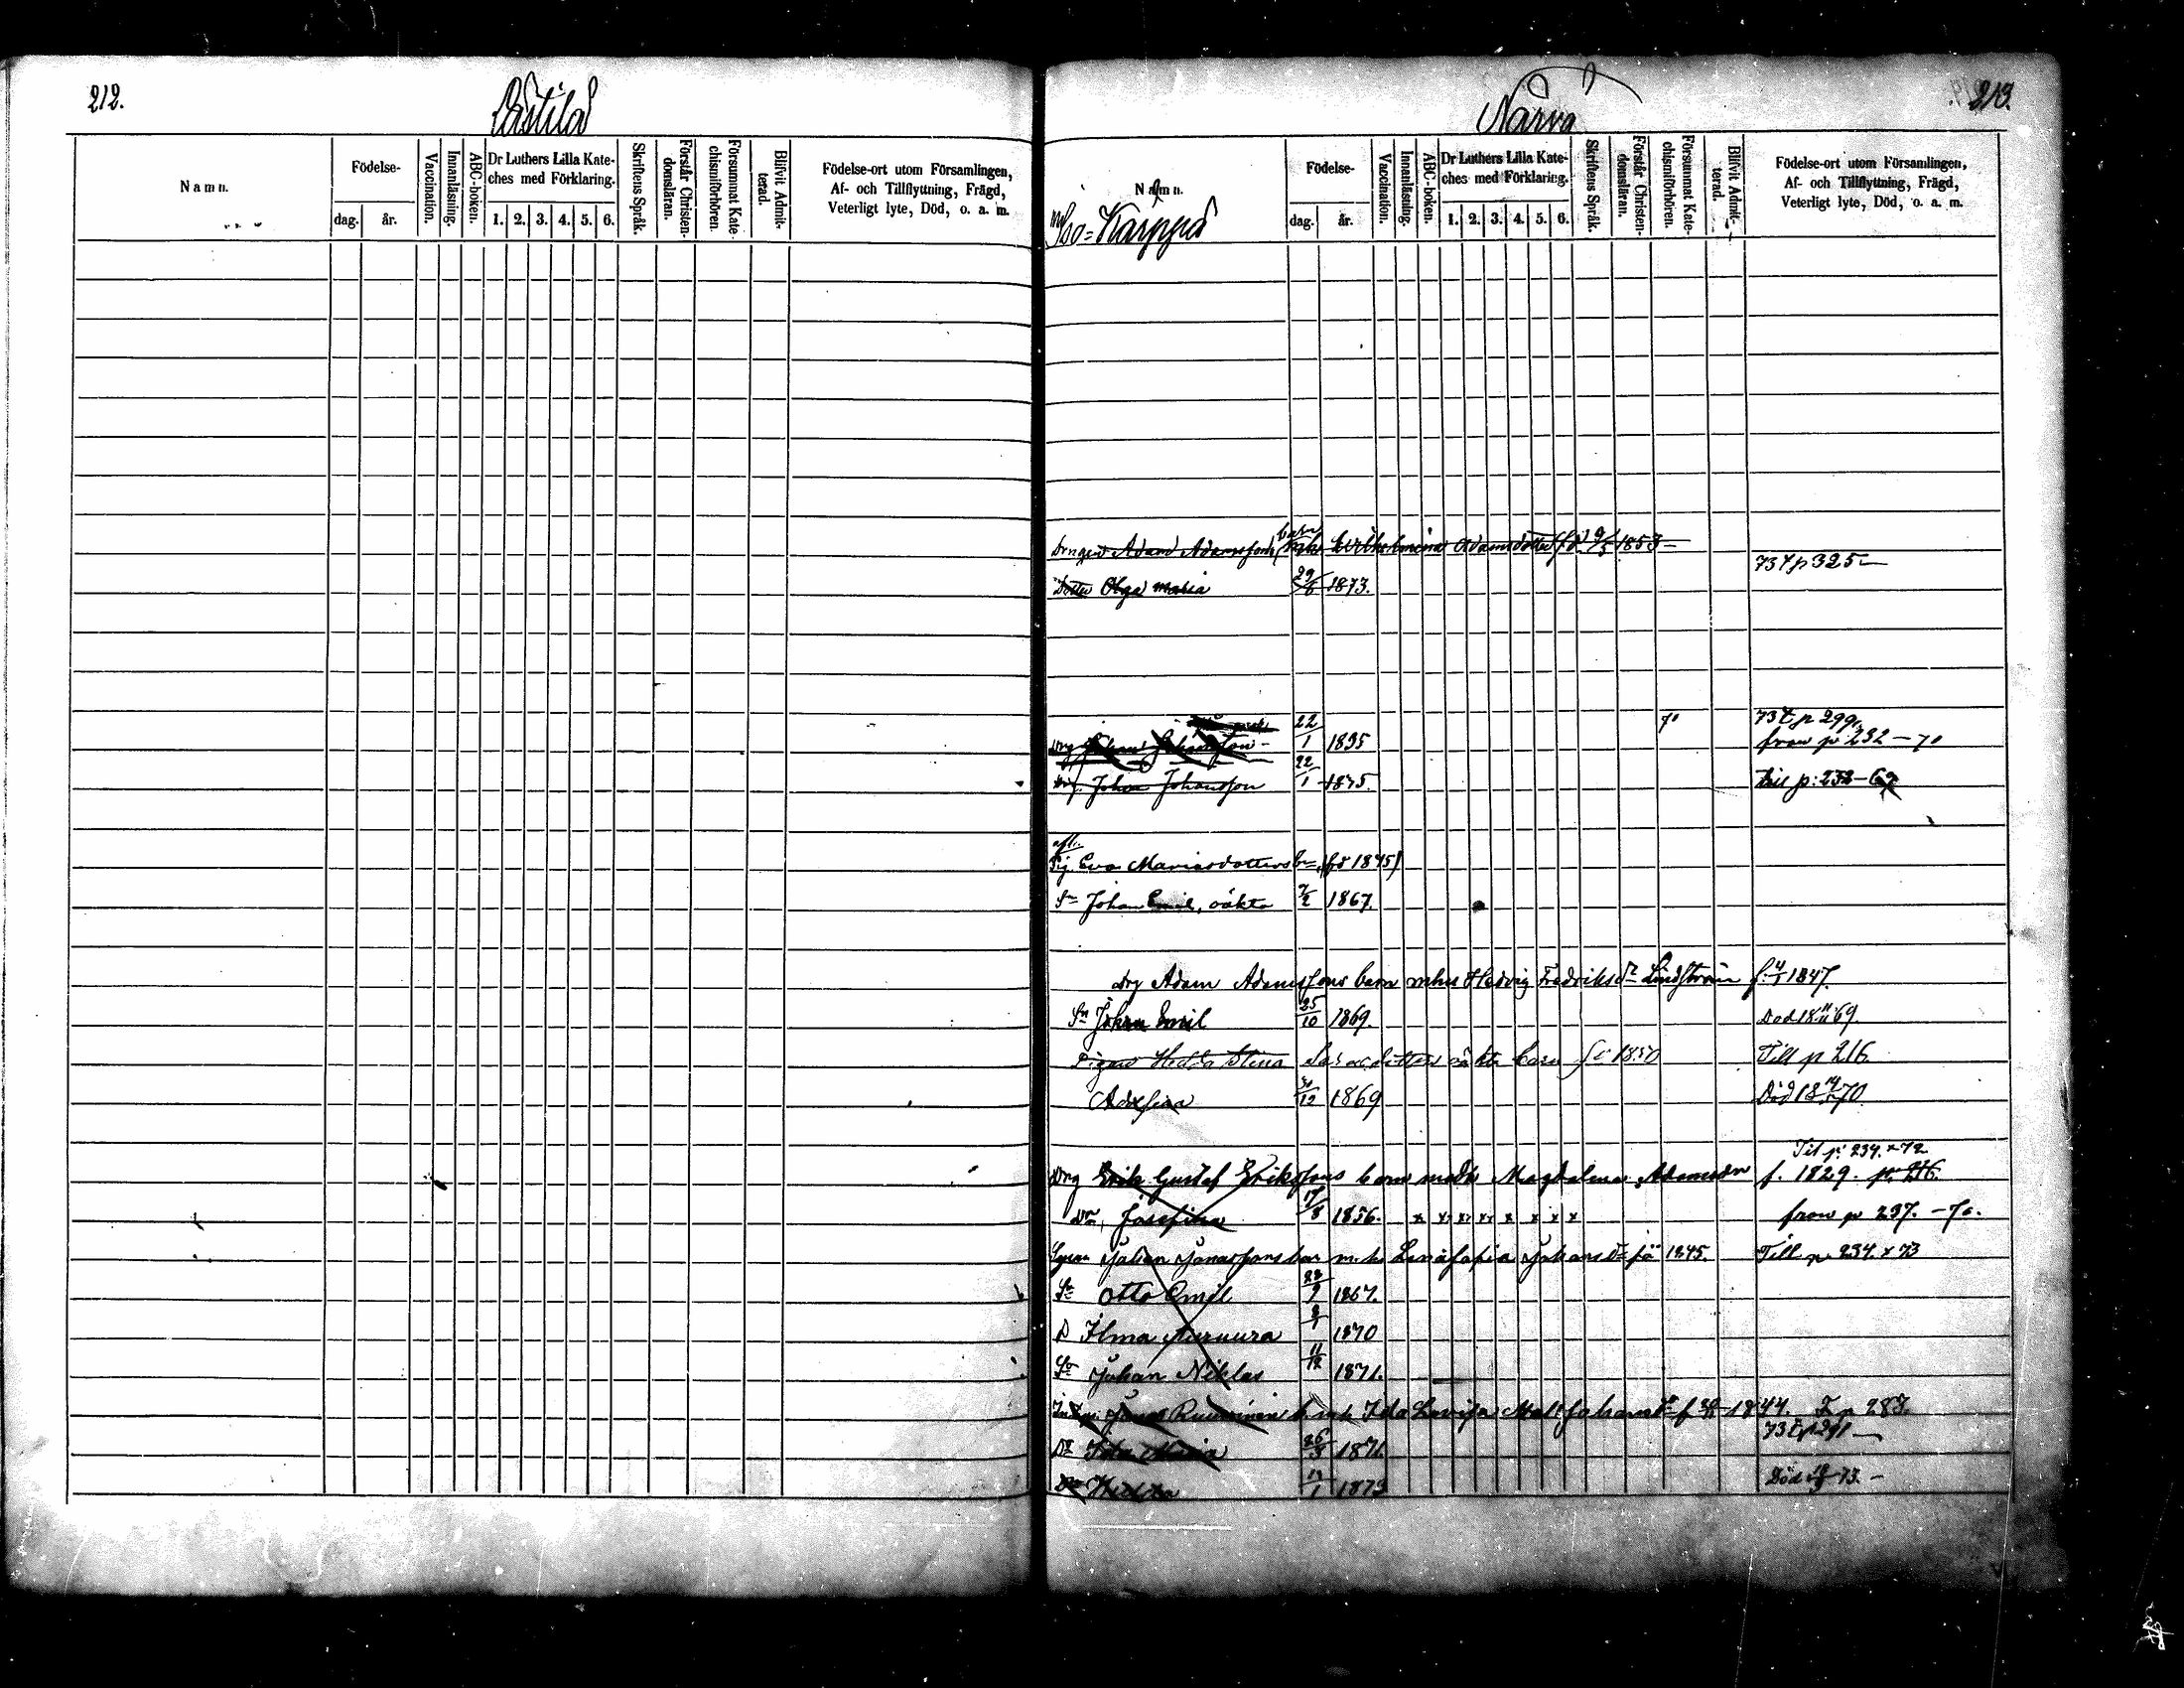 212.
Pästilä
Namn.
Födelse-
dag.
år.
Vaccination.
Innanläsning.
ABC-boken.
Dr Luthers Lilla Kate-
ches med Förklaring.
1. 2. 3. 4. 5. 6.
Skriftens Språk.
Förstår Christen-
domsläran.
Försummat Kate-
chismiförhören.
Blifvit Admit-
terad.
Födelse-ort utom Församlingen,
Af- och Tillflyttning, Frägd,
Veterligt lyte, Död, o. a. m.
213.
Närvä
Namn.
Karppa
Födelse-
dag.
år.
Vaccination.
Innanläsning.
ABC-boken.
Dr Luthers Lilla Kate-
ches med Förklaring.
1. 2. 3. 4. 5. 6.
Skriftens Språk.
Förstår Christen-
domsläran.
Försummat Kate-
chismiförhören.
Blifvit Admit-
terad.
Födelse-ort utom Församlingen,
Af- och Tillflyttning, Frägd,
Veterligt lyte, Död, o. a. m.
Drngen Adam Adamssons barn mh. Wilhelmina Adamsdotter fö 9/5 1853
73 t p 325
Dotter Olga Maria 29/6 1873.
Drg Johan Johansson 22/1 1835 70 73 t. p 299.
från p 232 - 70
Drg. Johan Johansson 22/1 1875. till p: 232-69
Pig. Eva Mariasdotters bn, (fö 1845)
Sn Johan Emil, oäkta 7/2 1867.
Drg Adam Adamssons barn mhu Hedvig Fredriksdr Lindström f. 4/1 1847.
Sn Johan Emil 25/10 1869. Död 18 69.
Pigan Hedda Stina oäkta barn fö 1850 Till p 216.
Adolfina 30/12 1869 Död 18 70.
Till p: 234. x 72
Drg Erik Gustaf Erikssons barn medh Magdalena Adamsdr f. 1829. p. 216.
Dr, Josefina 17/8 1856. x x x x x x x x från p 237. - 70.
Johan Jonassons bar m. h. Lovisa Sofia Johansdr fö 1845. Till p. 234. x 73
Sn Otto Emil 23/9 1867.
D Ilma Auruura 1870
Sn Johan Niklas 11/12 1871.
Jonas Ruuskinen b mh Ida Lovisa Matt Johansdr f 1844. T. p. 283.
73 t p 291
Dr Ida Maria 26/3 1871
Dr Hedda 1 1873 Död 73.